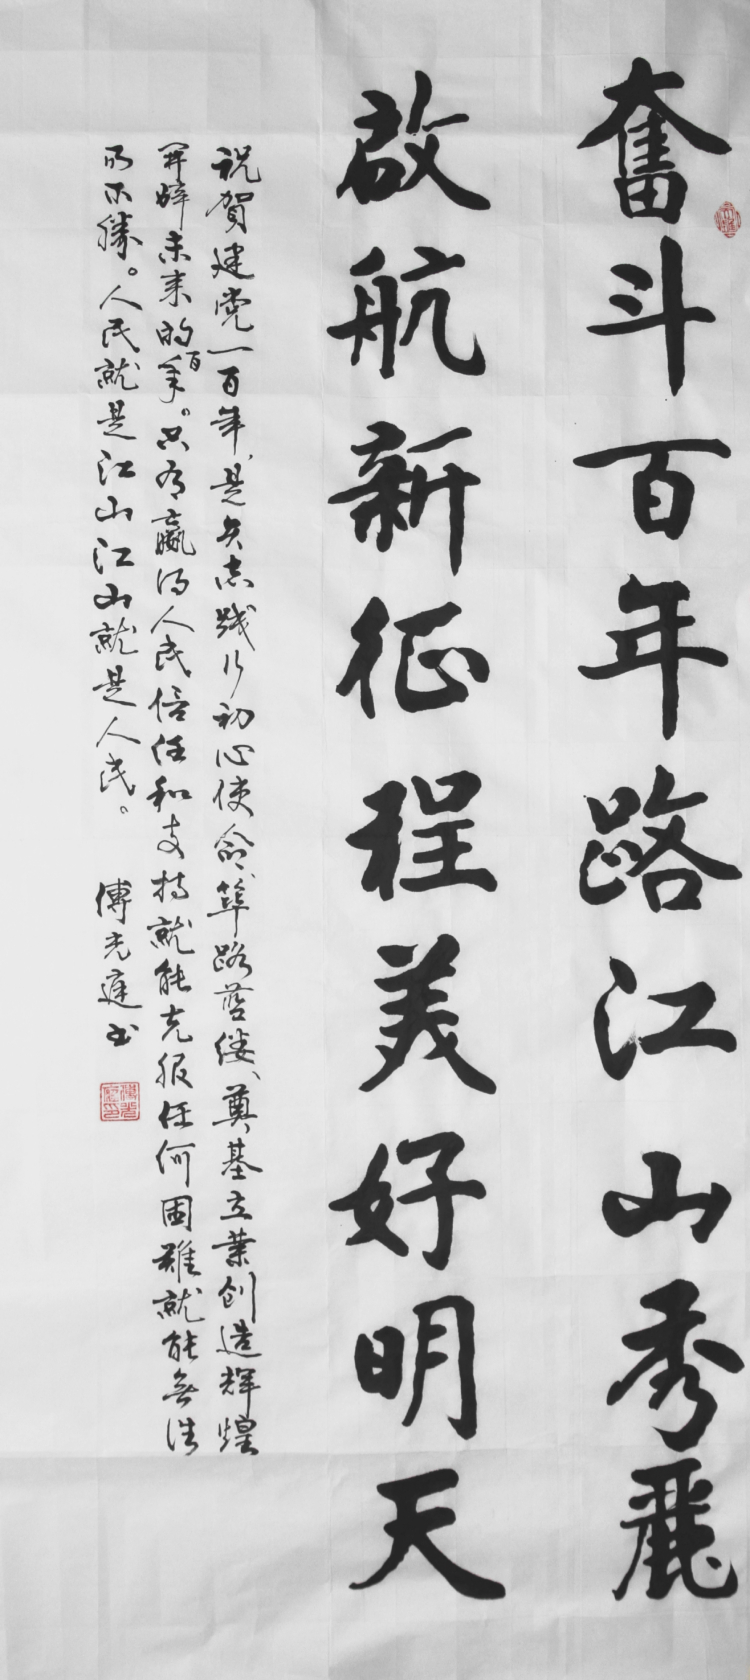 奮斗百年路江山秀麗
啟航新征程美好明天
祝賀建党一百年、是矢志践行初心使命、筚路蓝缕、奠基立業创造辉煌
开辟未来的百年。只有赢得人民信任和支持就能克服任何困难就能無往
而不勝。人民就是江山江山就是人民。
傅光庭书